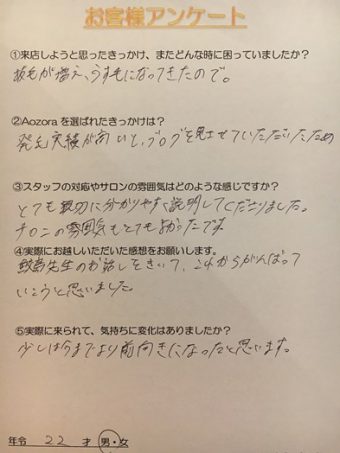 お客様アンケート
①来店しようと思ったきっかけ、またどんな時に困っていましたか?
抜毛が増え、うす毛になってきたので。
②Aozoraを選ばれたきっかけは?
発毛実績が高いと、ブログを見させていただいたため
③スタッフの対応やサロンの雰囲気はどのような感じですか?
とても親切に分かりやすく説明してくださりました。
サロンの雰囲気もとてもよかったです
④実際にお越しいただいた感想をお願いします。
先生のお話しをきいて、これからがんばって
いこうと思いました
⑤実際に来られて、気持ちに変化はありましたか?
少しは今までより前向きになったと思います。
年令 22 才 男・女